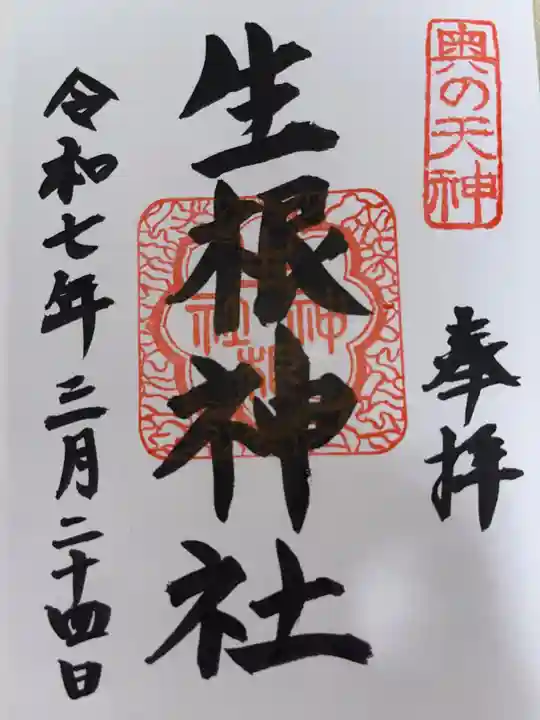 奥の天神
奉拝
生根神社
令和七年三月二十四日